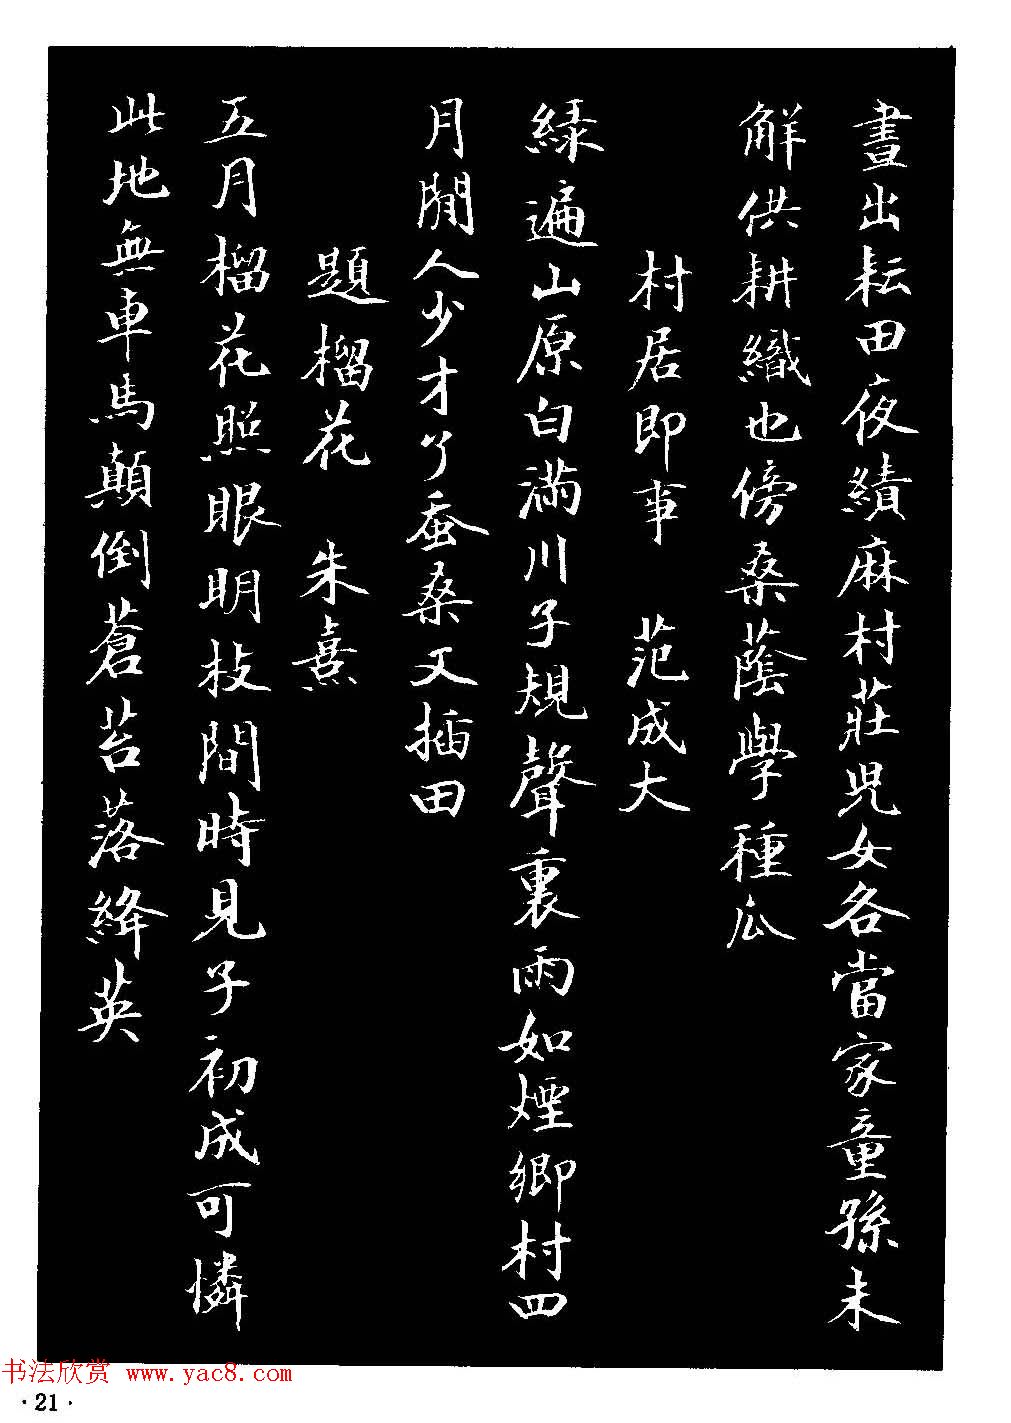 晝出耘田夜績麻村莊兒女各當家童孫未
解供耕織也傍桑蔭學種瓜
村居即事 范成大
綠遍山原白滿川子規聲裏雨如煙鄉村四
月閒人少才了蚕桑又插田
題榴花 朱熹
五月榴花照眼明枝間時見子初成可憐
此地無車馬顛倒蒼苔落絳英
书法欣赏 www.yac8.com
·21·